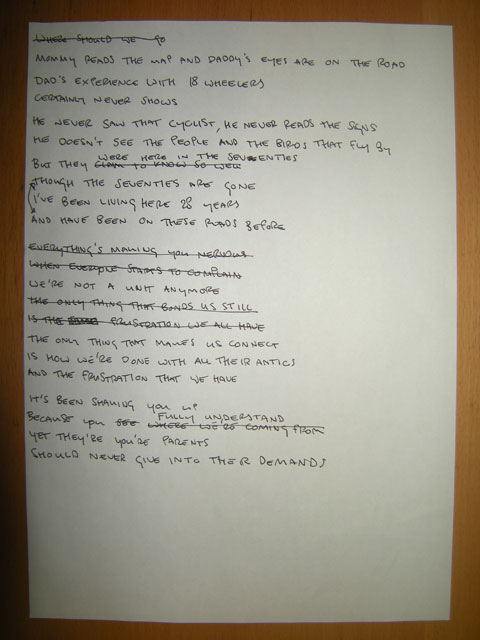 WHERE SHOULD WE GO
MOMMY READS THE MAP AND DADDY'S EYES ARE ON THE ROAD
DAD'S EXPERIENCE WITH 18 WHEELERS
CERTAINLY NEVER SHOWS
HE NEVER SAW THAT CYCLIST, HE NEVER READS THE SIGNS
HE DOESN'T SEE THE PEOPLE AND THE BIRDS THAT FLY BY
WERE HERE IN THE SEVENTIES
BUT THEY CLAIM TO KNOW SO WELL
THOUGH THE SEVENTIES ARE GONE
I'VE BEEN LIVING HERE 28 YEARS
AND HAVE BEEN ON THESE ROADS BEFORE
EVERYTHING'S MAKING YOU NERVOUS
WHEN EVERYONE STARTS TO COMPLAIN
WE'RE NOT A UNIT ANYMORE
THE ONLY THING THAT BONDS US STILL
IS THE FRUSTRATION WE ALL HAVE
THE ONLY THING THAT MAKES US CONNECT
IS HOW WE'RE DONE WITH ALL THEIR ANTICS
AND THE FRUSTRATION THAT WE HAVE
IT'S BEEN SHAKING YOU UP
FULLY UNDERSTAND
BECAUSE YOU SEE WHERE WE'RE COMING FROM
YET THEY'RE YOU'RE PARENTS
SHOULD NEVER GIVE INTO THEIR DEMANDS